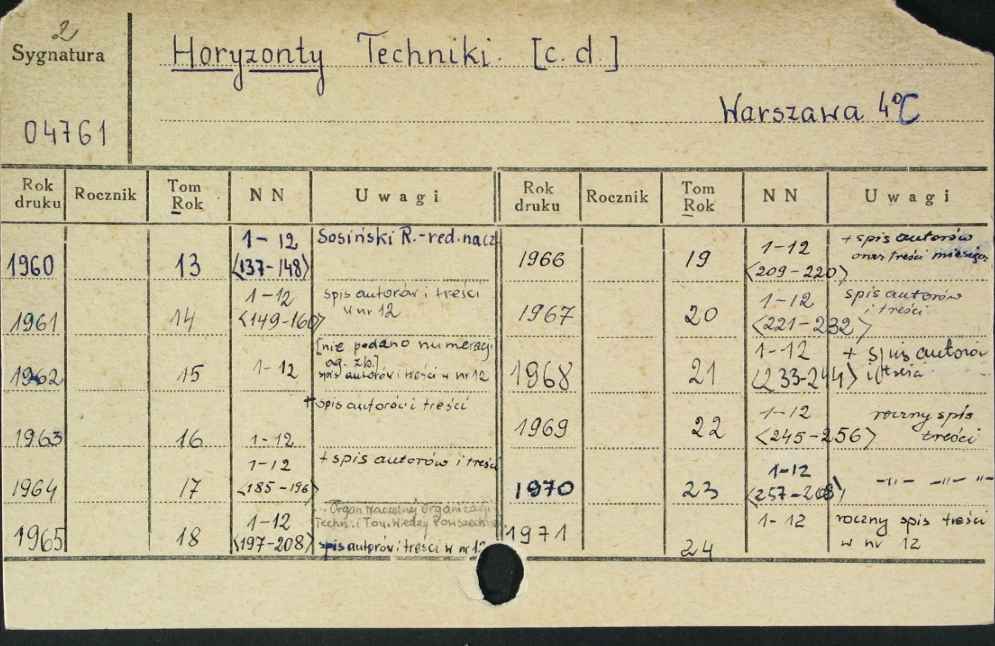 2
Sygnatura
04761
Horyzonty Techniki. [c. d.]
Warszawa 4°C
Rok druku Rocznik Tom Rok N N Uwagi
1960 13 1-12 <137-148> Sosiński R.-red.nacz
1961 14 1-12 <149-160> spis autorów i treści w nr 12
1962 15 1-12 [nie podano numeracji og. zb.] spis autorów i treści w nr 12
1963 16 1-12 + spis autorów i treści
1964 17 1-12 <185-196> + spis autorów i treści
1965 18 1-12 <197-208> Organ Naczelnej Organizacji Techn. i Tow. Wiedzy Powszechnej spis autorów i treści w nr 12
Rok druku Rocznik Tom Rok N N Uwagi
1966 19 1-12 <209-220> + spis autorów oraz treści miesięcz
1967 20 1-12 <221-232> spis autorów i treści
1968 21 1-12 <233-244> + spis autorów i treści
1969 22 1-12 <245-256> roczny spis treści
1970 23 1-12 <257-268> -"- -"- "-
1971 24 1-12 roczny spis treści w nr 12